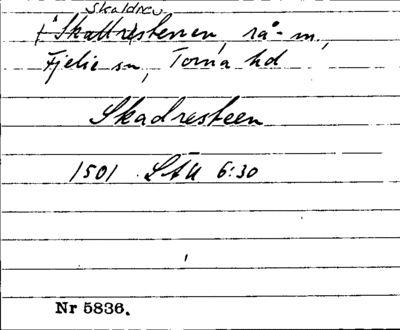 Skaldrev
("Skattre)stenen, rå-m.,
Fjelie sn, Torna hd
Skadresteen
1501 LÄU 6:30
Nr 5836.